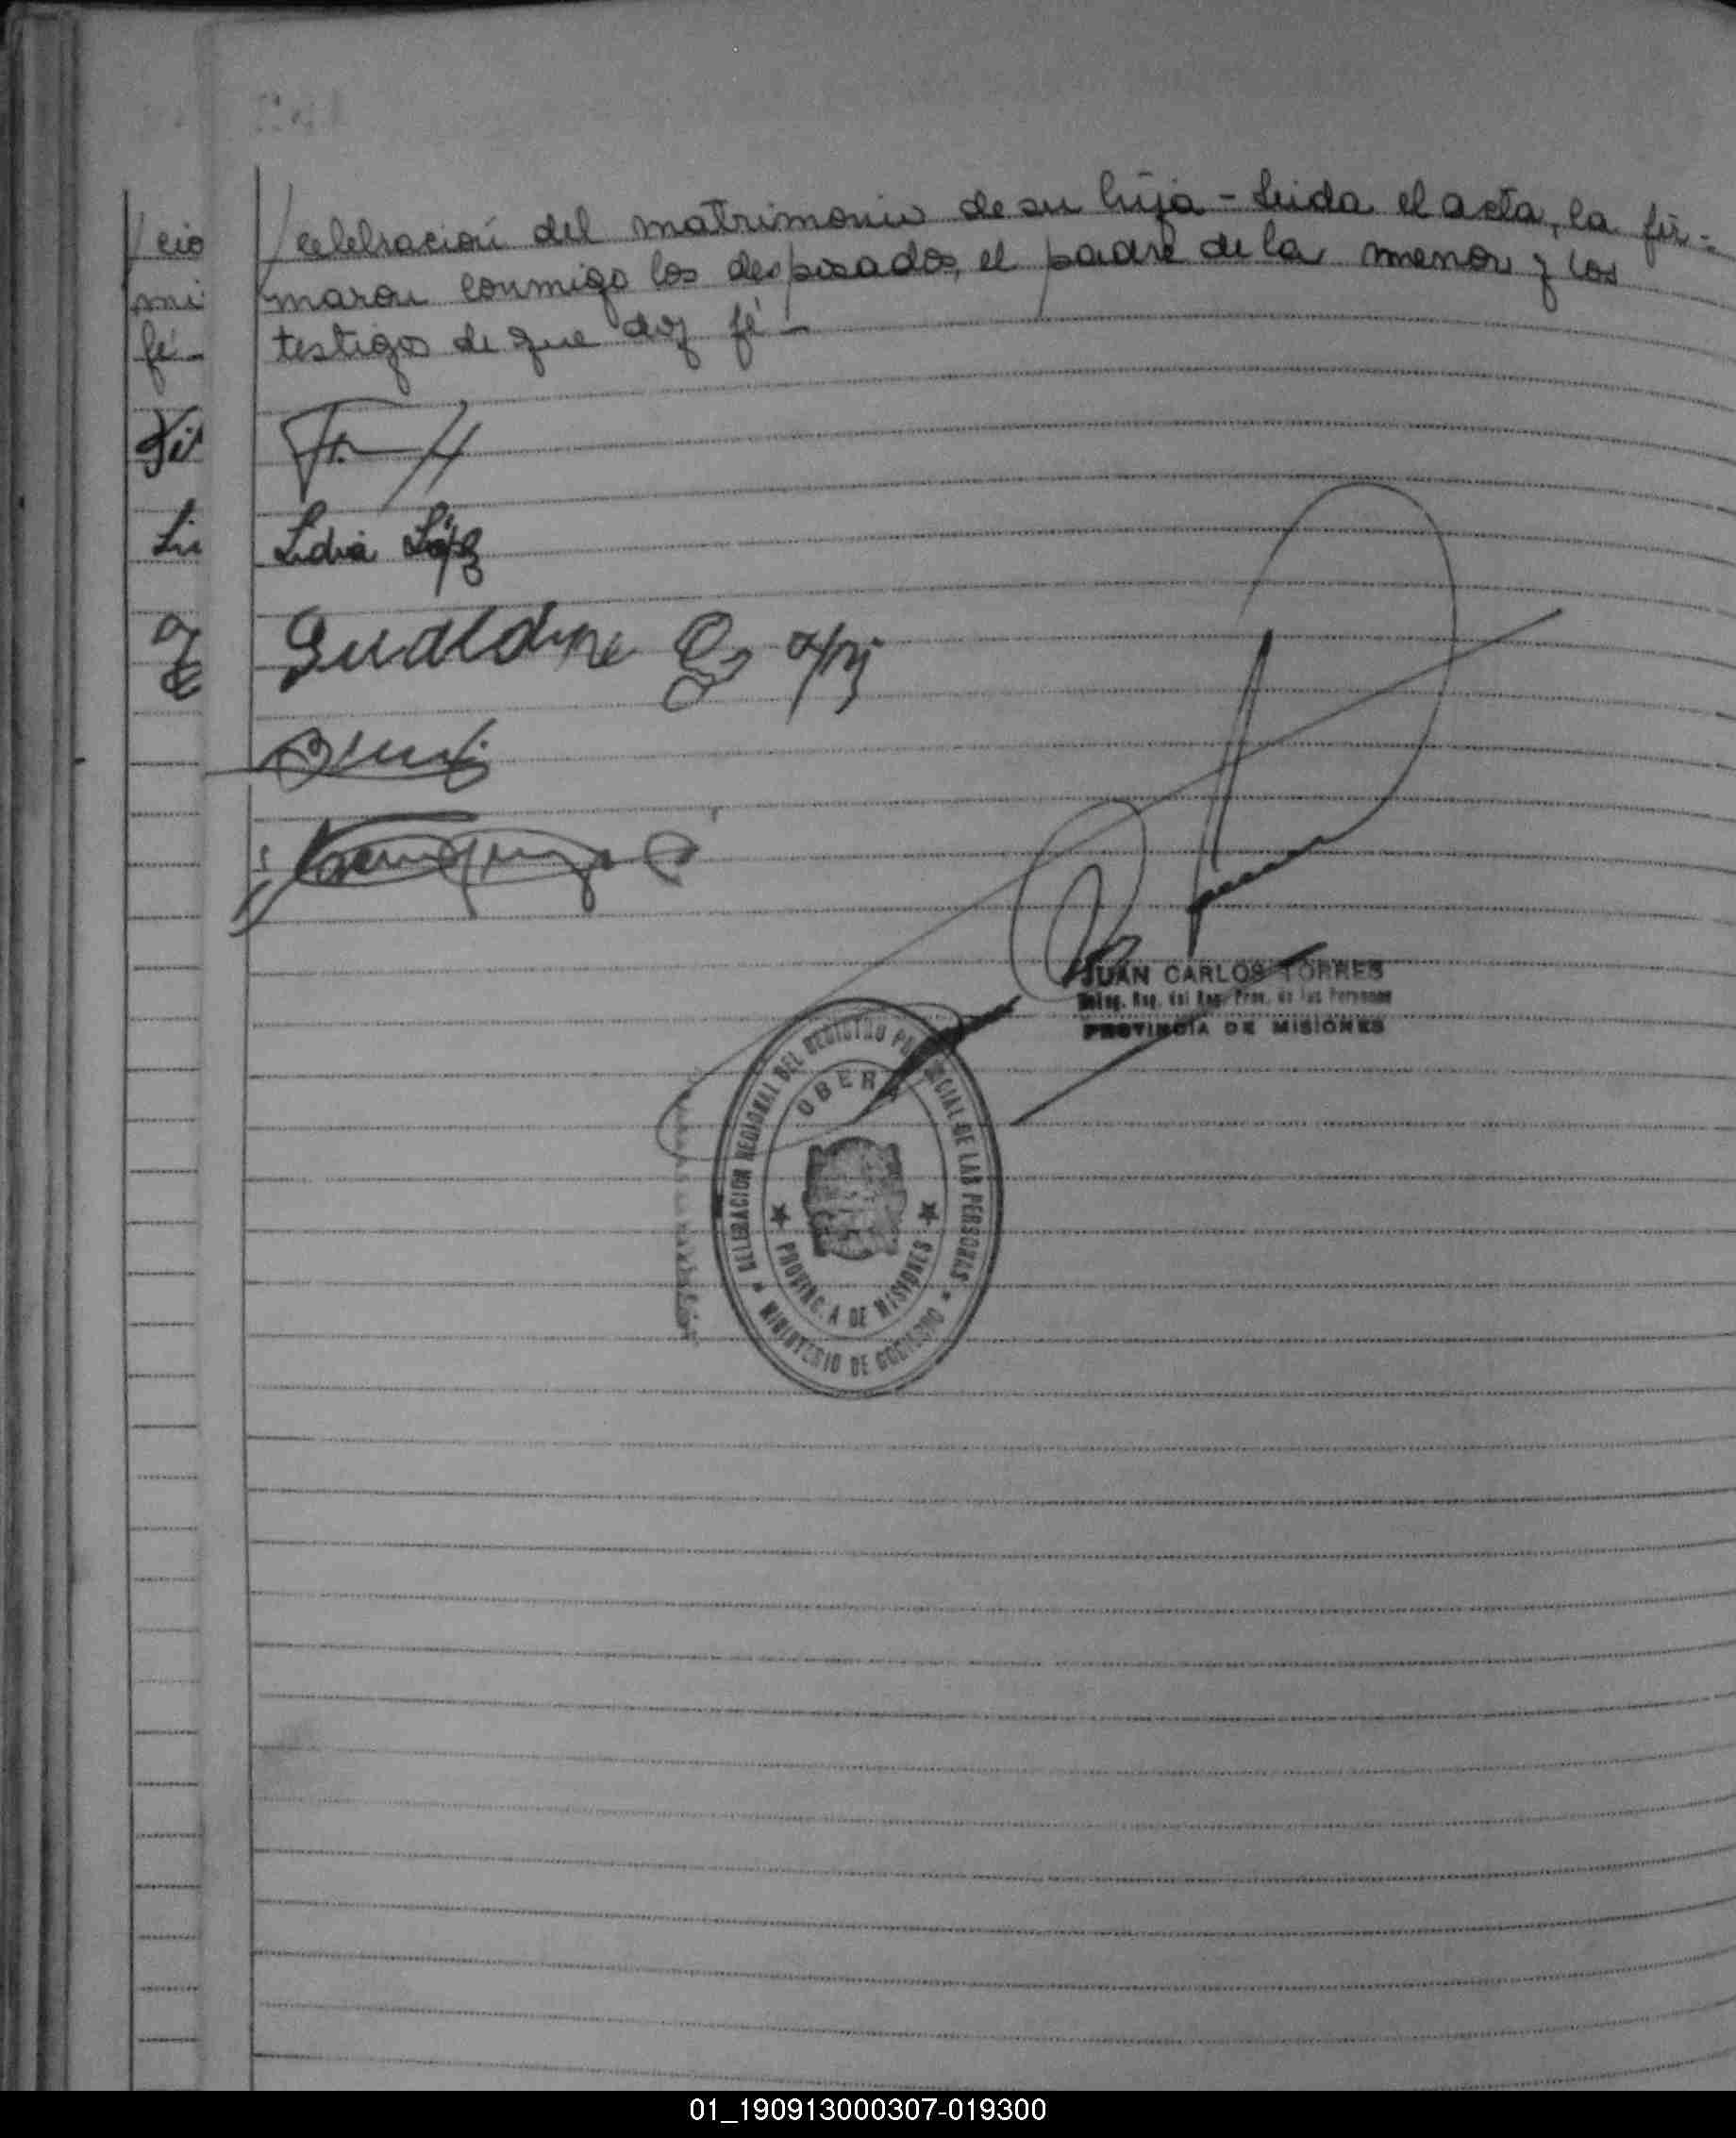 /celebración del matrimonio de su hija - Leida el acta, la fir-
maron conmigo los desposados, el padre de la menor y los
testigos de que doy fé -
Lidia López
JUAN CARLOS TORRES
Deleg. Reg. del Reg. Prov. de las Personas
PROVINCIA DE MISIONES
DELEGACION REGIONAL DEL REGISTRO PROVINCIAL DE LAS PERSONAS
OBERA
PROVINCIA DE MISIONES
MINISTERIO DE GOBIERNO
/cio
mi
fé -
Li
01_190913000307-019300